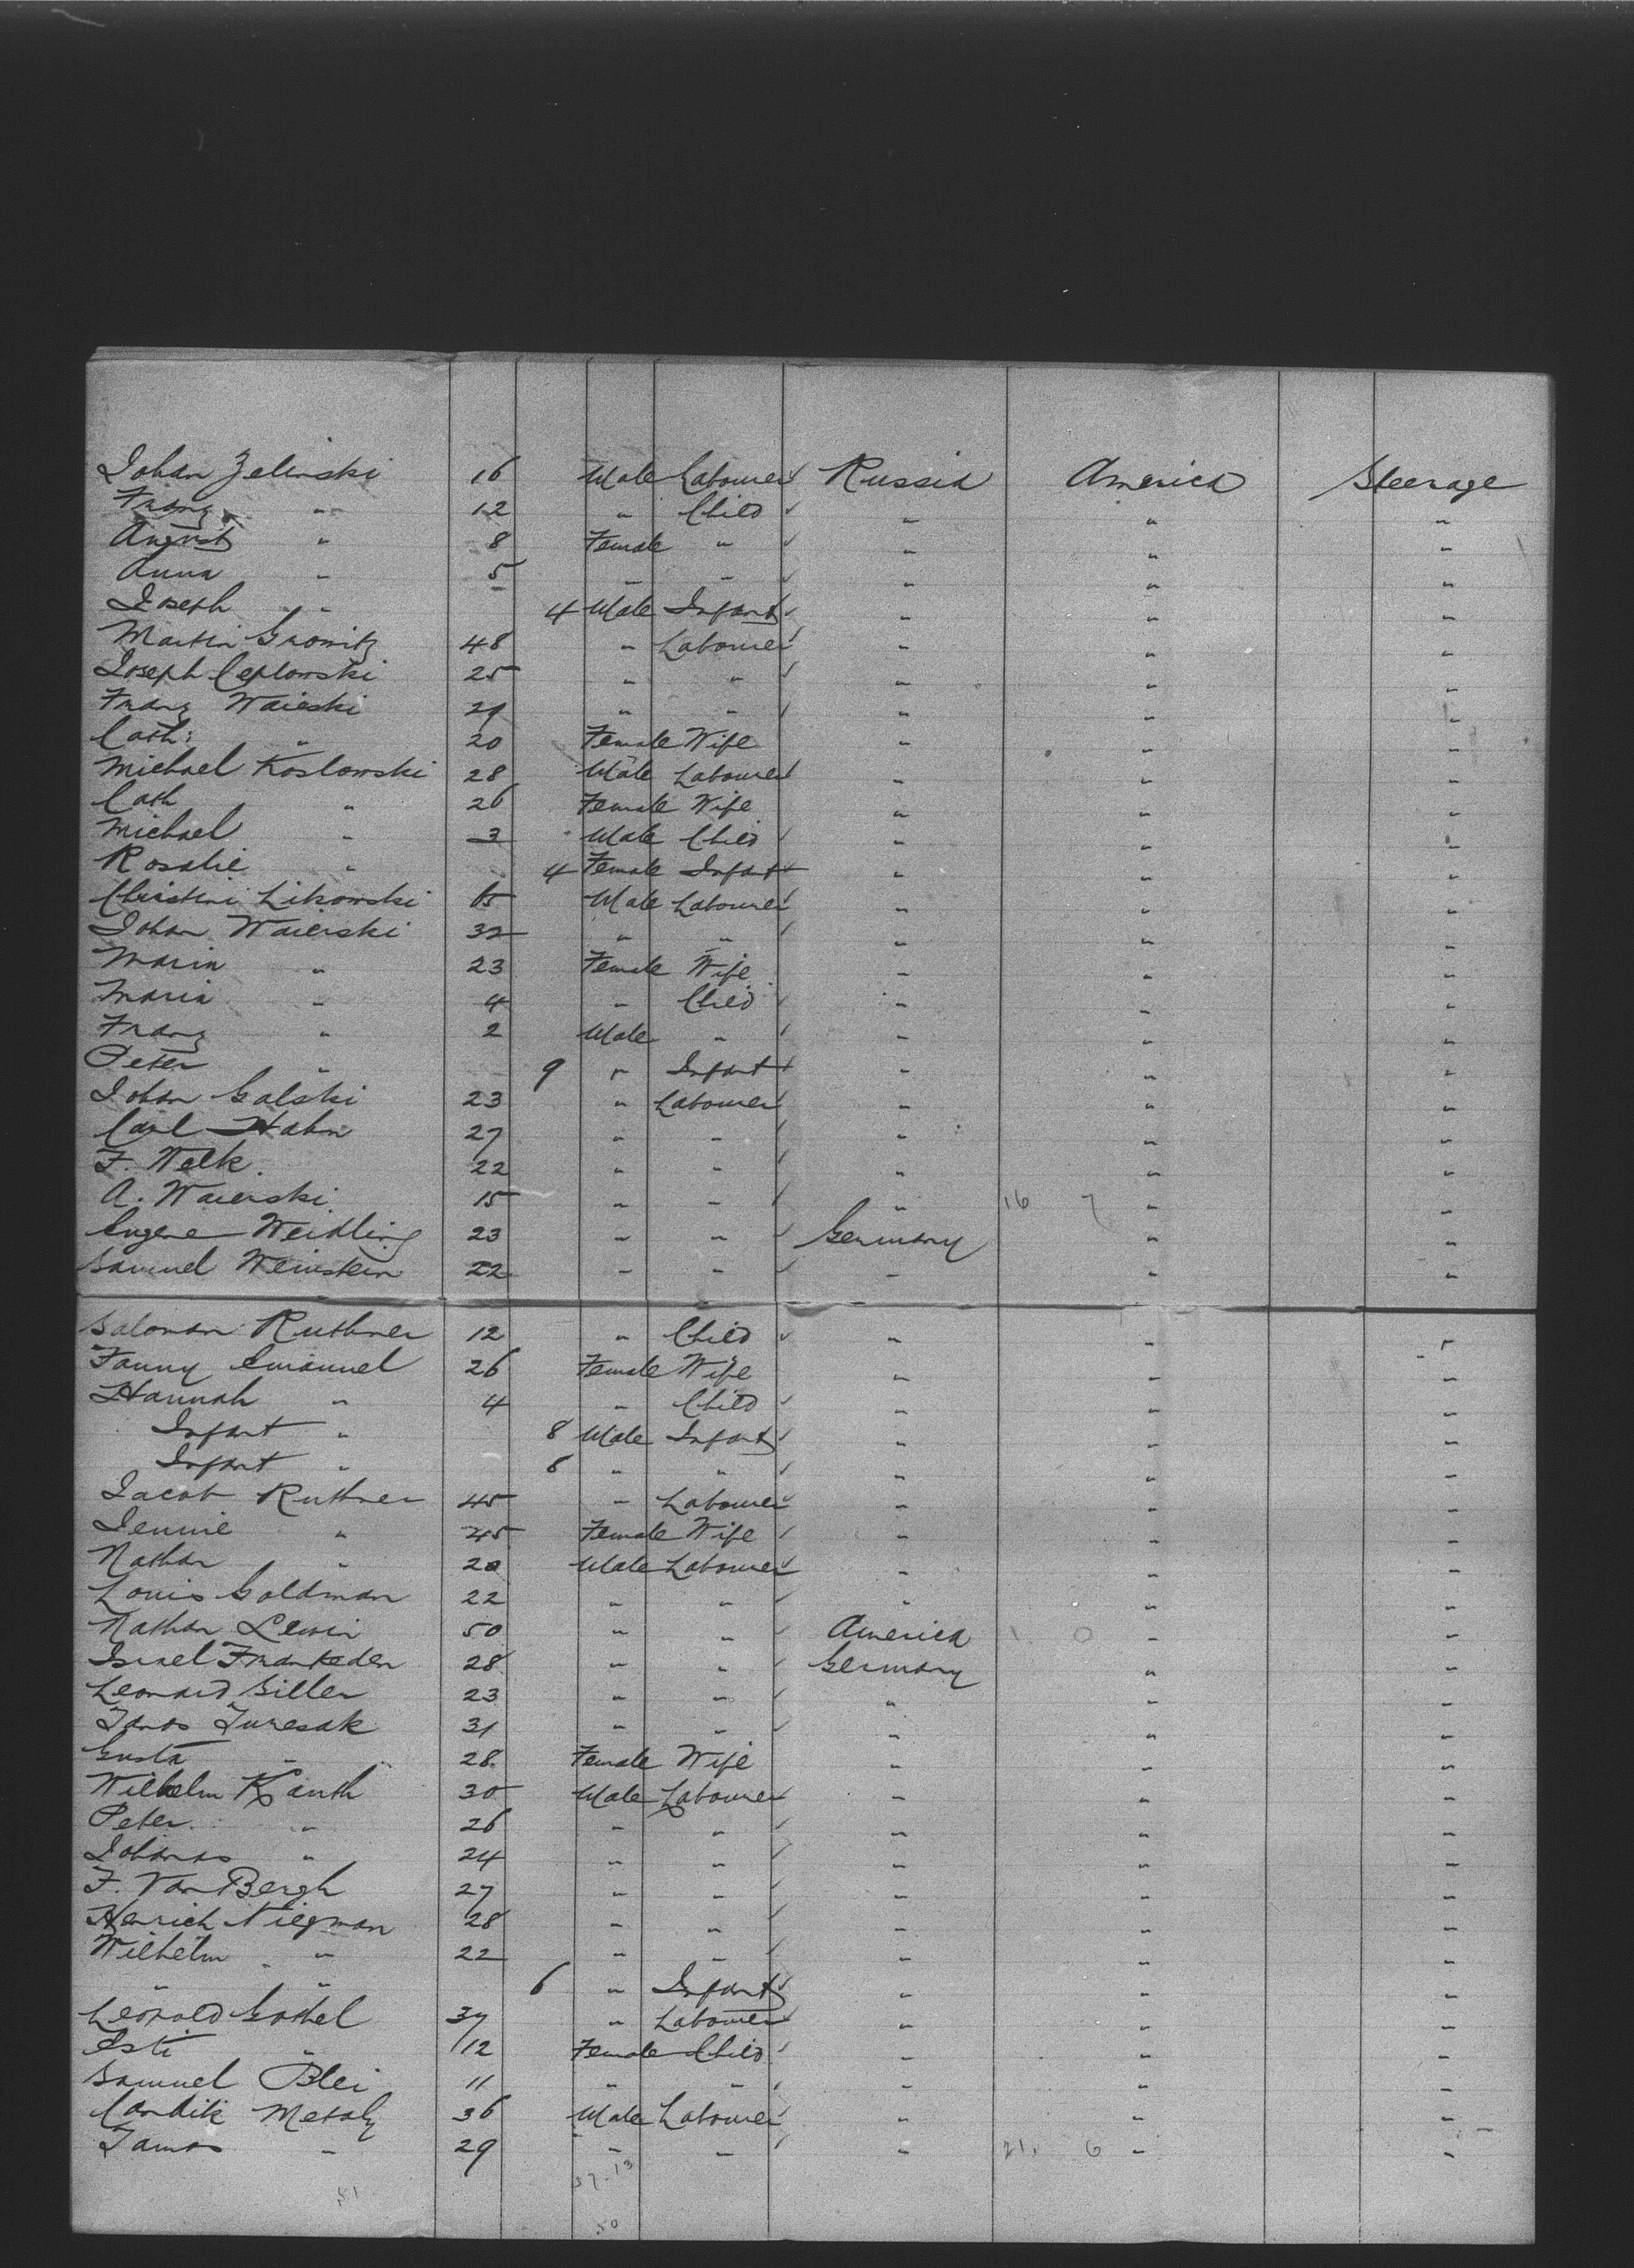 Johan Zelinski 16 Male Labourer Russia America Steerage
Franz " 12 " Child " " "
August " 8 Female " " " "
Anna " 5 " " " " "
Joseph " 4 Male Infant " " "
Martin Gromitz 48 " Labourer " " "
Joseph Ceplowski 25 " " " " "
Franz Waieski 29 " " " " "
Cath: " 20 Female Wife " " "
Michael Koslowski 28 Male Labourer " " "
Cath " 26 Female Wife " " "
Michael " 3 Male Child " " "
Rosalie " 4 Female Infant " " "
Christini Likowski 65 Male Labourer " " "
Johan Waierski 32 " " " " "
Maria " 23 Female Wife " " "
Maria " 4 " Child " " "
Franz " 2 Male " " " "
Peter " 9 " Infant " " "
Johan Galski 23 " Labourer " " "
Carl Hahn 27 " " " " "
F. Welk 22 " " " " "
A. Waierski 15 " " " 16 7 " "
Eugene Weidling 23 " " Germany " "
Samuel Weinstein 22 " " " " "
Saloman Ruthner 12 " Child " " "
Fanny Emanuel 26 Female Wife " " "
Hannah " 4 " Child " " "
Infant " 8 Male Infant " " "
Infant " 8 " " " " "
Jacob Ruthner 45 " Labourer " " "
Jennie " 45 Female Wife " " "
Nathan " 20 Male Labourer " " "
Louis Goldman 22 " " " " "
Nathan Lewin 50 " " America 1 0 " "
Israel Frankeden 28 " " Germany " "
Leonard Siller 23 " " " " "
Janos Juresak 31 " " " " "
Gusta " 28 Female Wife " " "
Wilhelm Kanth 30 Male Labourer " " "
Peter " 26 " " " " "
Johanas " 24 " " " " "
F. Van Bergh 27 " " " " "
Henrich Niegman 28 " " " " "
Wilhelm " 22 " " " " "
" " 6 " Infant " " "
Leopold Gothel 37 " Labourer " " "
Esti " 12 Female Child " " "
Samuel Blei 11 " " " " "
Metaly 36 Male Labourer " " "
Janos " 29 " " " 21 6 " "
37-13
51
50